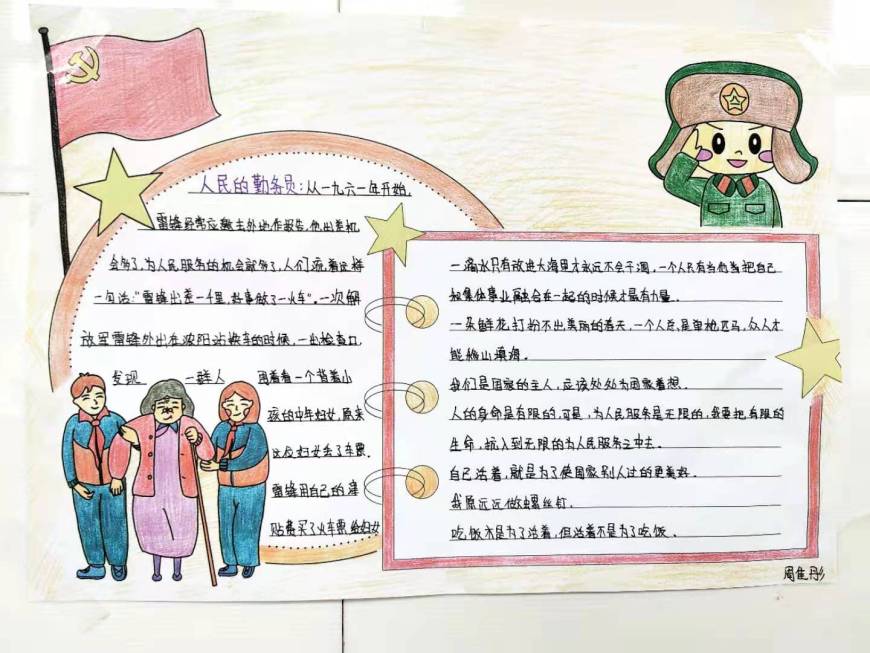 人民的勤务员:从一九六一年开始,
雷锋经常应邀去外地作报告,他出差机
会多了,为人民服务的机会就多了,人们流着这样
一句话:“雷锋出差一千里,故事做了一火车”。一次解
放军雷锋外出在沈阳站换车的时候,一出检查口,
发现 一群人 围着看一个背着小
孩的中年妇女,原来
这位妇女丢了车票.
雷锋用自己的津
贴费买了火车票给妇女
一滴水只有放进大海里才永远不会干涸,一个人只有当他当把自己
和集体事业融合在一起的时候才最有力量.
一朵鲜花打扮不出美丽的春天,一个人总是单枪匹马,众人才
能移山填海。
我们是国家的主人,应该处处为国家着想.
人的身命是有限的,可是,为人民服务是无限的,我要把有限的
生命,投入到无限的为人民服务之中去.
自己活着,就是为了使国家别人过的更美好.
我愿远远做螺丝钉.
吃饭不是为了活着,但活着不是为了吃饭.
周佳彤